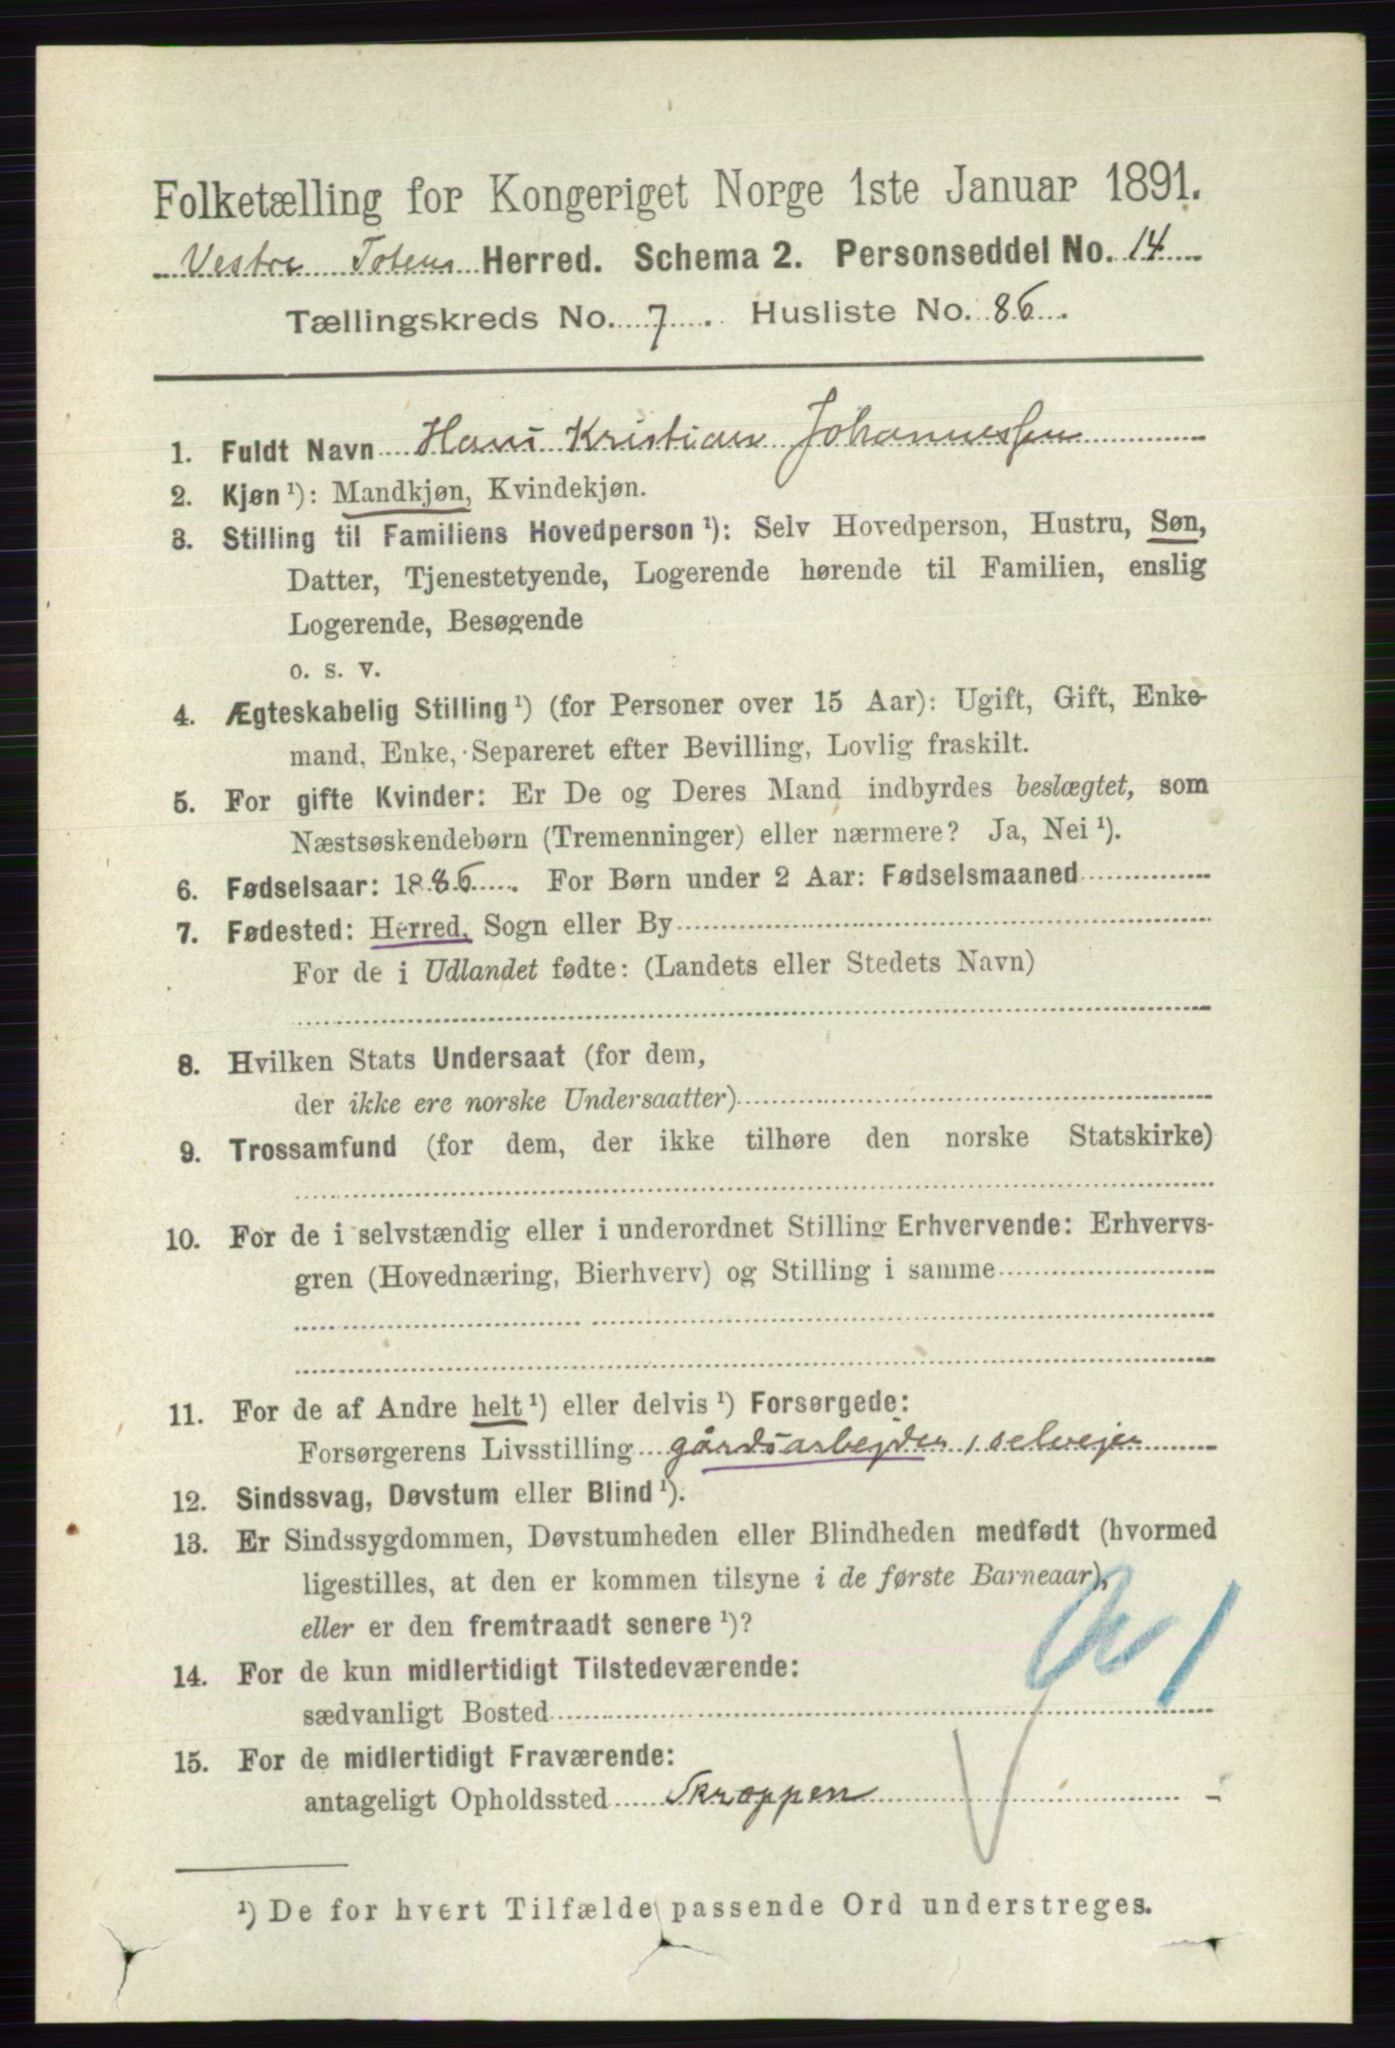 Folketælling for Kongeriget Norge 1ste Januar 1891.
Vestre Totens Herred. Schema 2. Personseddel No. 14
Tællingskreds No. 7. Husliste No. 86.
1. Fuldt Navn Hans Kristian Johannessen
2. Kjøn ¹): Mandkjøn, Kvindekjøn.
3. Stilling til Familiens Hovedperson ¹): Selv Hovedperson, Hustru, Søn,
Datter, Tjenestetyende, Logerende hørende til Familien, enslig
Logerende, Besøgende
o. s. v.
4. Ægteskabelig Stilling ¹) (for Personer over 15 Aar): Ugift, Gift, Enke-
mand, Enke, Separeret efter Bevilling, Lovlig fraskilt.
5. For gifte Kvinder: Er De og Deres Mand indbyrdes beslægtet, som
Næstsøskendebørn (Tremenninger) eller nærmere? Ja, Nei ¹).
6. Fødselsaar: 1886. For Børn under 2 Aar: Fødselsmaaned
7. Fødested: Herred, Sogn eller By
For de i Udlandet fødte: (Landets eller Stedets Navn)
8. Hvilken Stats Undersaat (for dem,
der ikke ere norske Undersaatter)
9. Trossamfund (for dem, der ikke tilhøre den norske Statskirke)
10. For de i selvstændig eller i underordnet Stilling Erhvervende: Erhvervs-
gren (Hovednæring, Bierhverv) og Stilling i samme
11. For de af Andre helt ¹) eller delvis ¹) Forsørgede:
Forsørgerens Livsstilling gårdsarbejder, selvejer
12. Sindssvag, Døvstum eller Blind ¹).
13. Er Sindssygdommen, Døvstumheden eller Blindheden medfødt (hvormed
ligestilles, at den er kommen tilsyne i de første Barneaar),
eller er den fremtraadt senere ¹)?
14. For de kun midlertidigt Tilstedeværende:
sædvanligt Bosted
15. For de midlertidigt Fraværende:
antageligt Opholdssted Skroppen
¹) De for hvert Tilfælde passende Ord understreges.